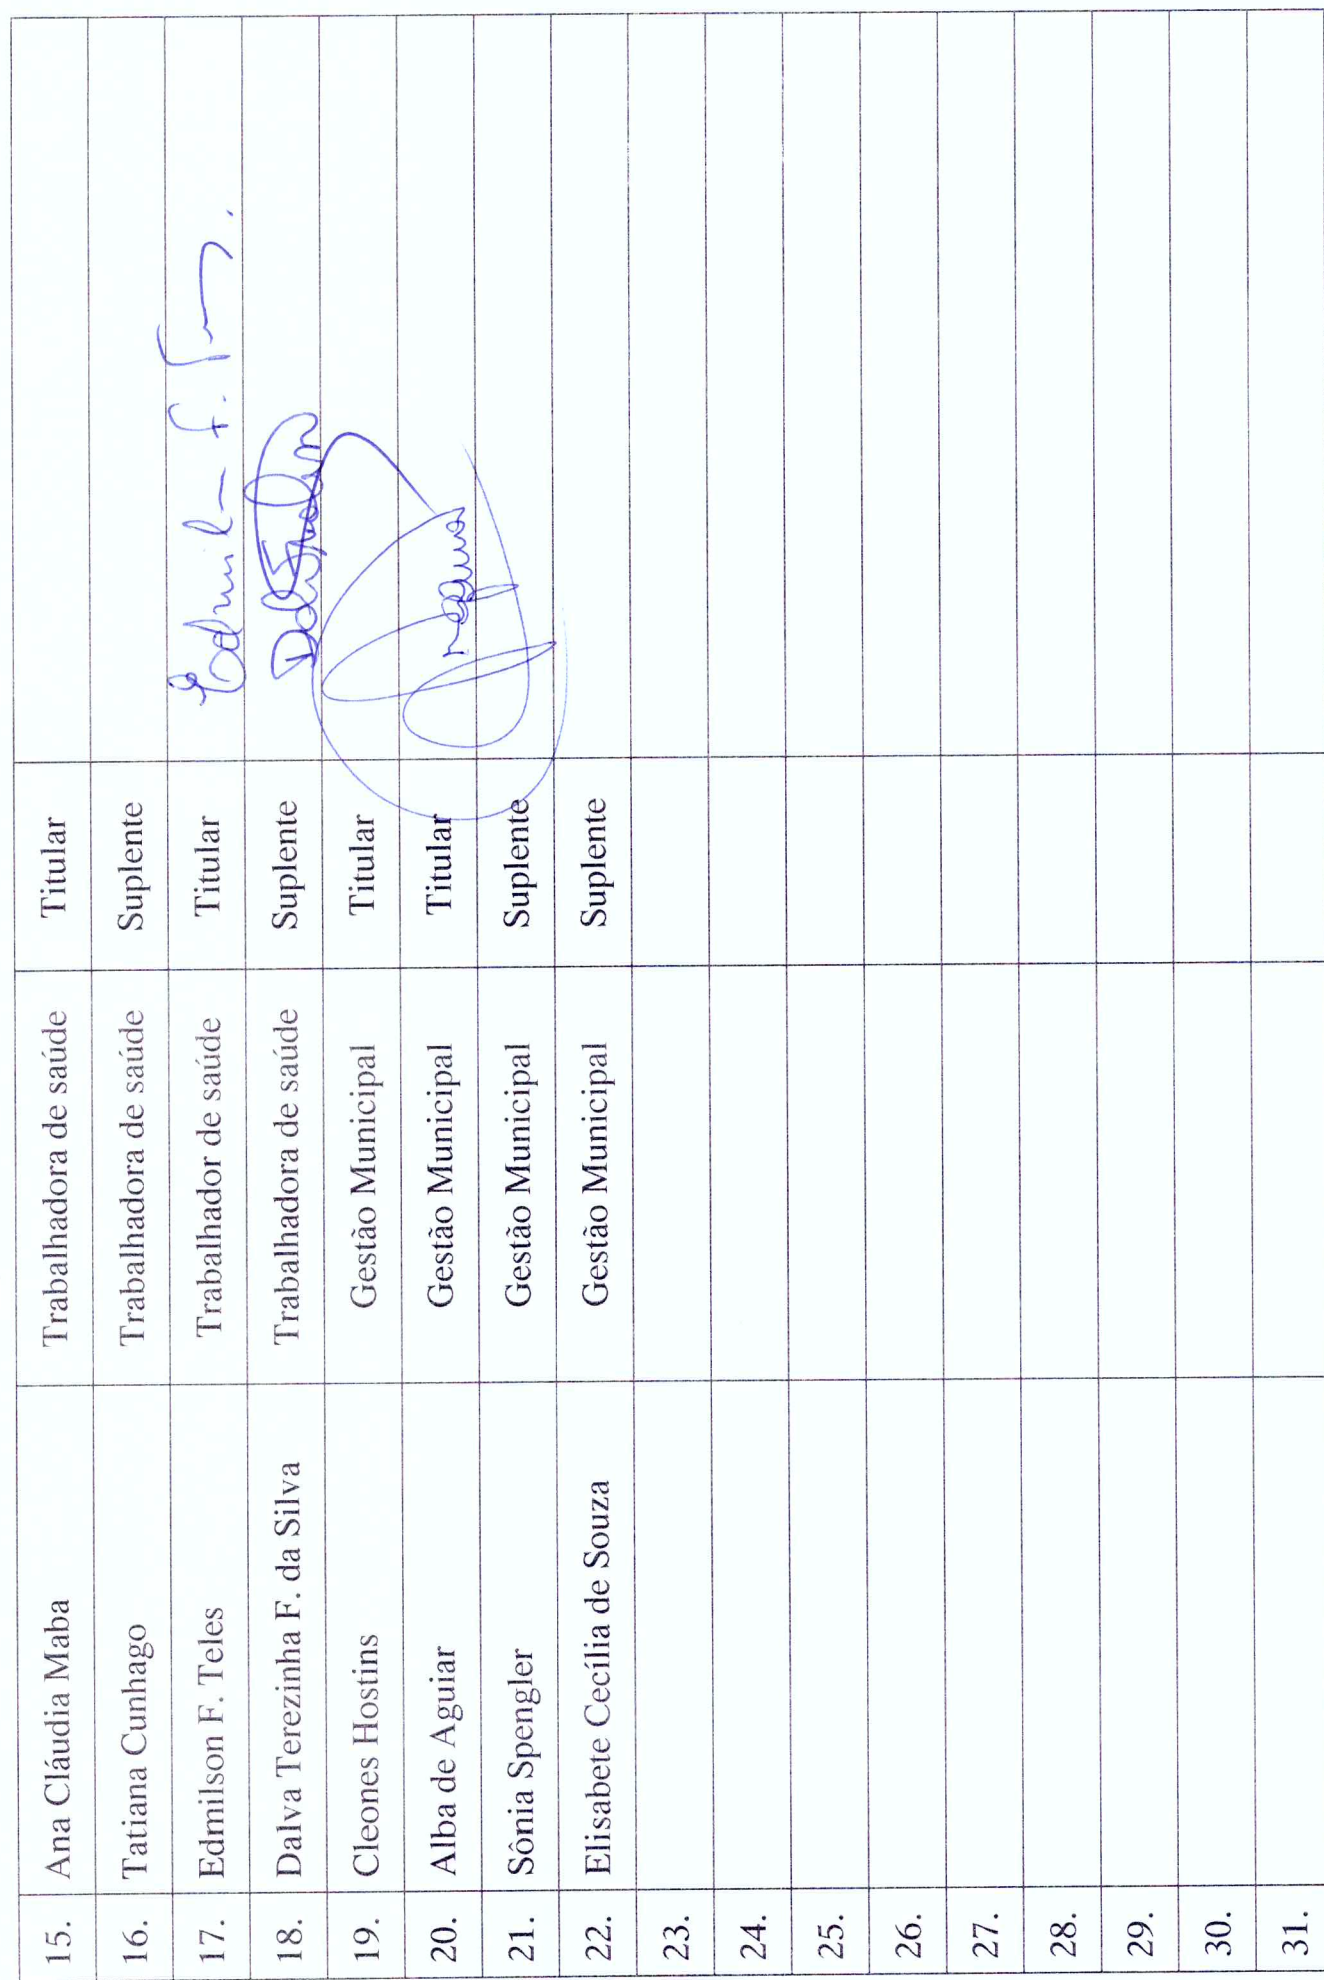 15. Ana Cláudia Maba Trabalhadora de saúde Titular
16. Tatiana Cunhago Trabalhadora de saúde Suplente
17. Edmilson F. Teles Trabalhador de saúde Titular
18. Dalva Terezinha F. da Silva Trabalhadora de saúde Suplente
19. Cleones Hostins Gestão Municipal Titular
20. Alba de Aguiar Gestão Municipal Titular
21. Sônia Spengler Gestão Municipal Suplente
22. Elisabete Cecília de Souza Gestão Municipal Suplente
23.
24.
25.
26.
27.
28.
29.
30.
31.